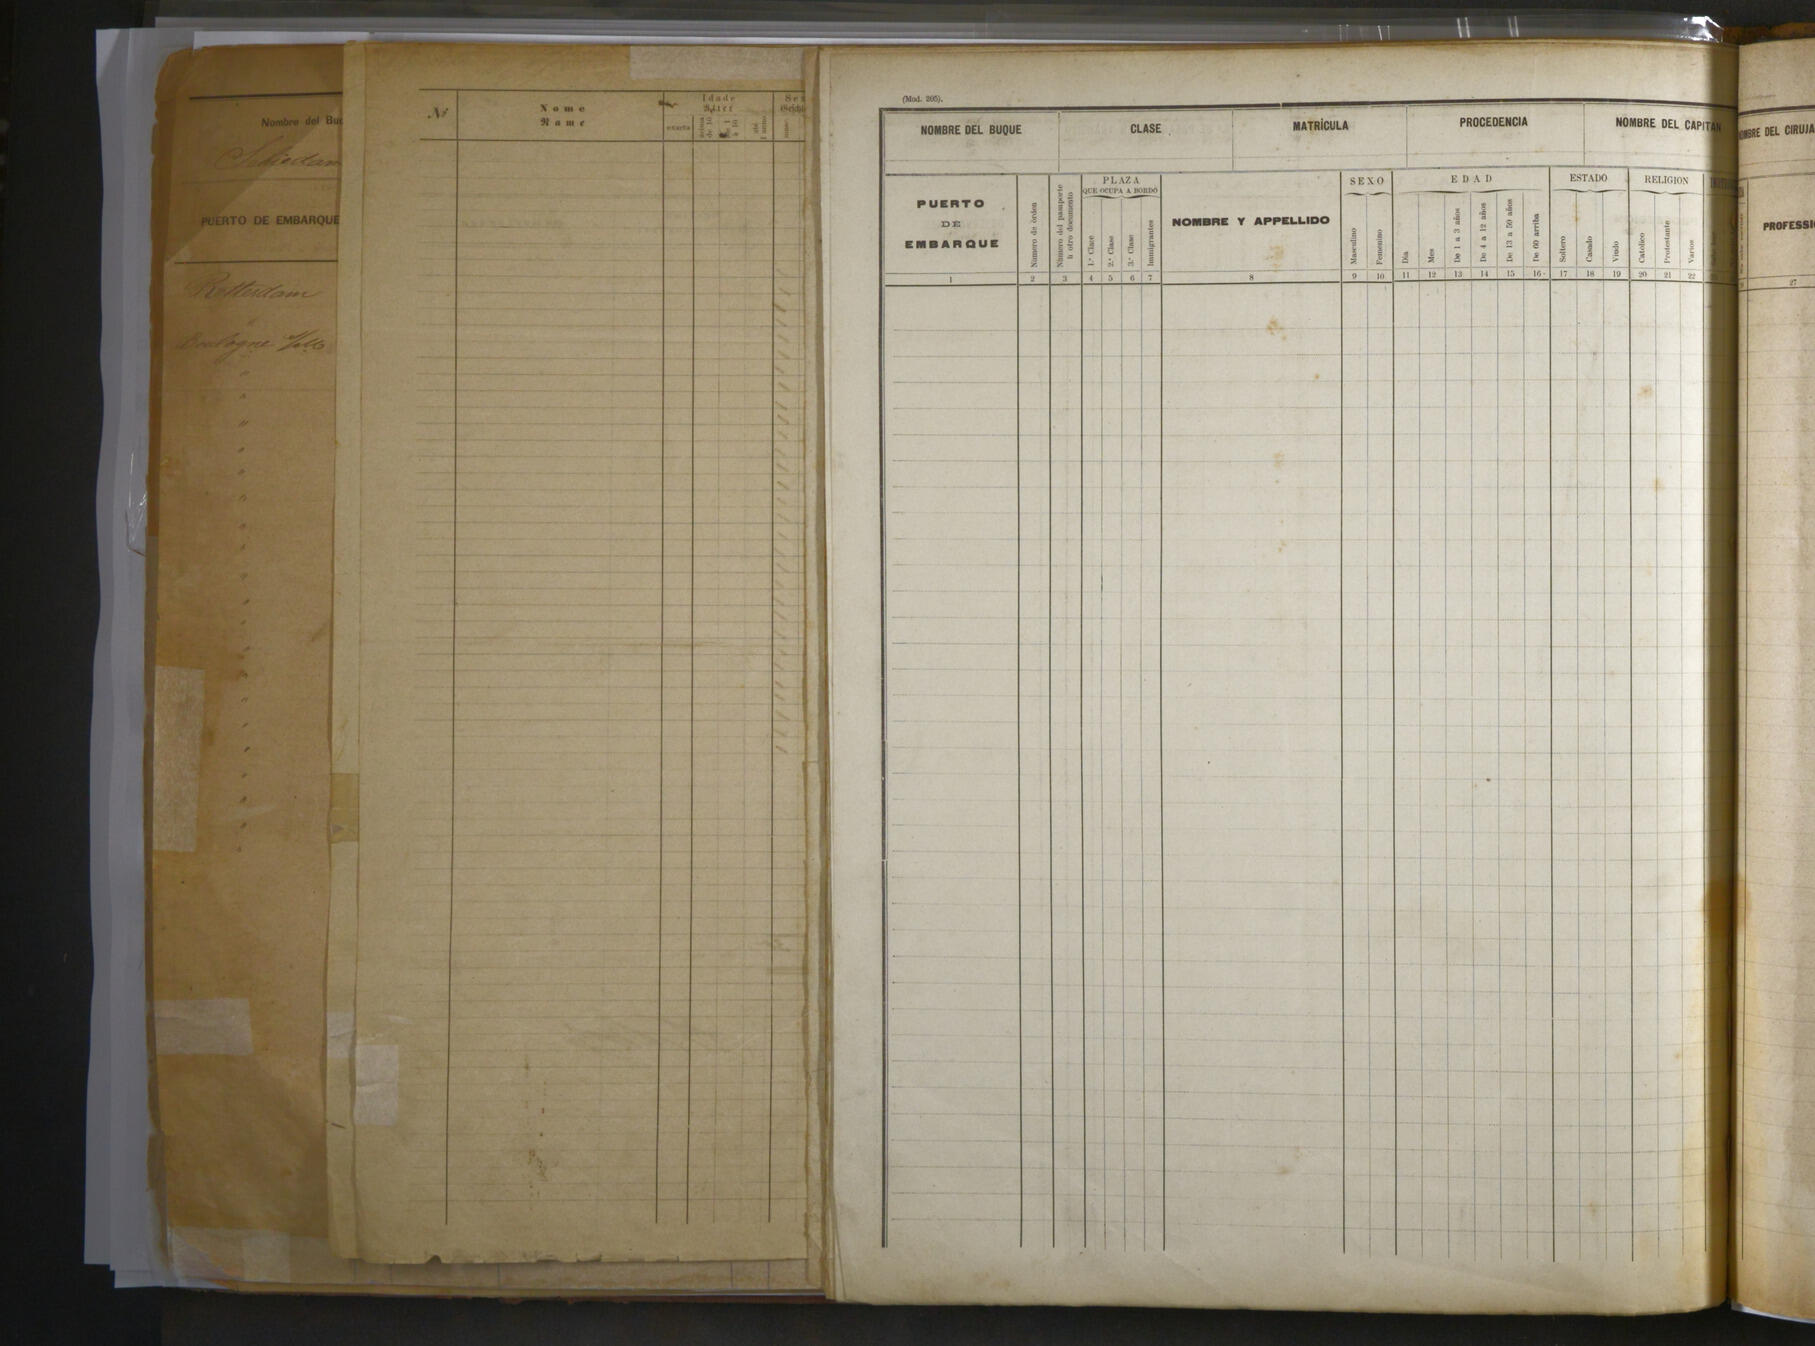 Nombre del Buq
Schiedam
PUERTO DE EMBARQUE
Rotterdam
Boulogne s/M
Nº
Nome
Name
Idade
Alter
exacta
até
1 anno
(Mod. 205).
NOMBRE DEL BUQUE
CLASE
MATRÍCULA
PROCEDENCIA
NOMBRE DEL CAPITAN
OMBRE DEL CIRUJA
PUERTO
DE
EMBARQUE
Número de órden
Número del pasaporte
ú otro documento
PLAZA
QUE OCUPA A BORDO
1.ª Clase
2.ª Clase
3.ª Clase
Inmigrantes
NOMBRE Y APPELLIDO
SEXO
Masculino
Femenino
EDAD
Dia
Mes
De 1 a 3 años
De 4 a 12 años
De 13 a 59 años
De 60 arriba
ESTADO
Soltero
Casado
Viudo
RELIGION
Catolico
Protestante
Varios
PROFESSI
1 2 3 4 5 6 7 8 9 10 11 12 13 14 15 16 17 18 19 20 21 22 27